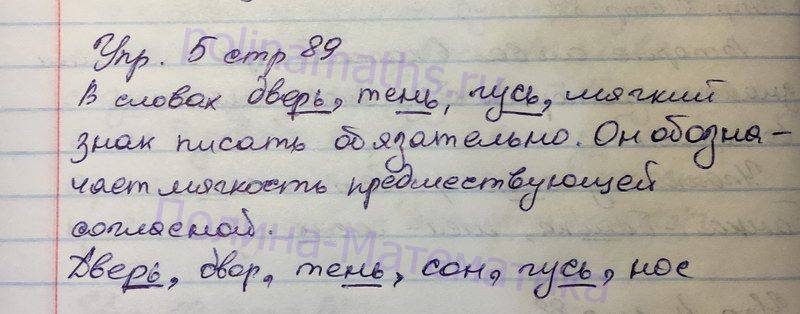 Упр. 5 стр 89
В словах дверь, тень, гусь, мягкий
знак писать обязательно. Он обозна-
чает мягкость предшествующей
согласной.
Дверь, двор, тень, сон, гусь, нос
polinamaths.ru
Полина-Математика